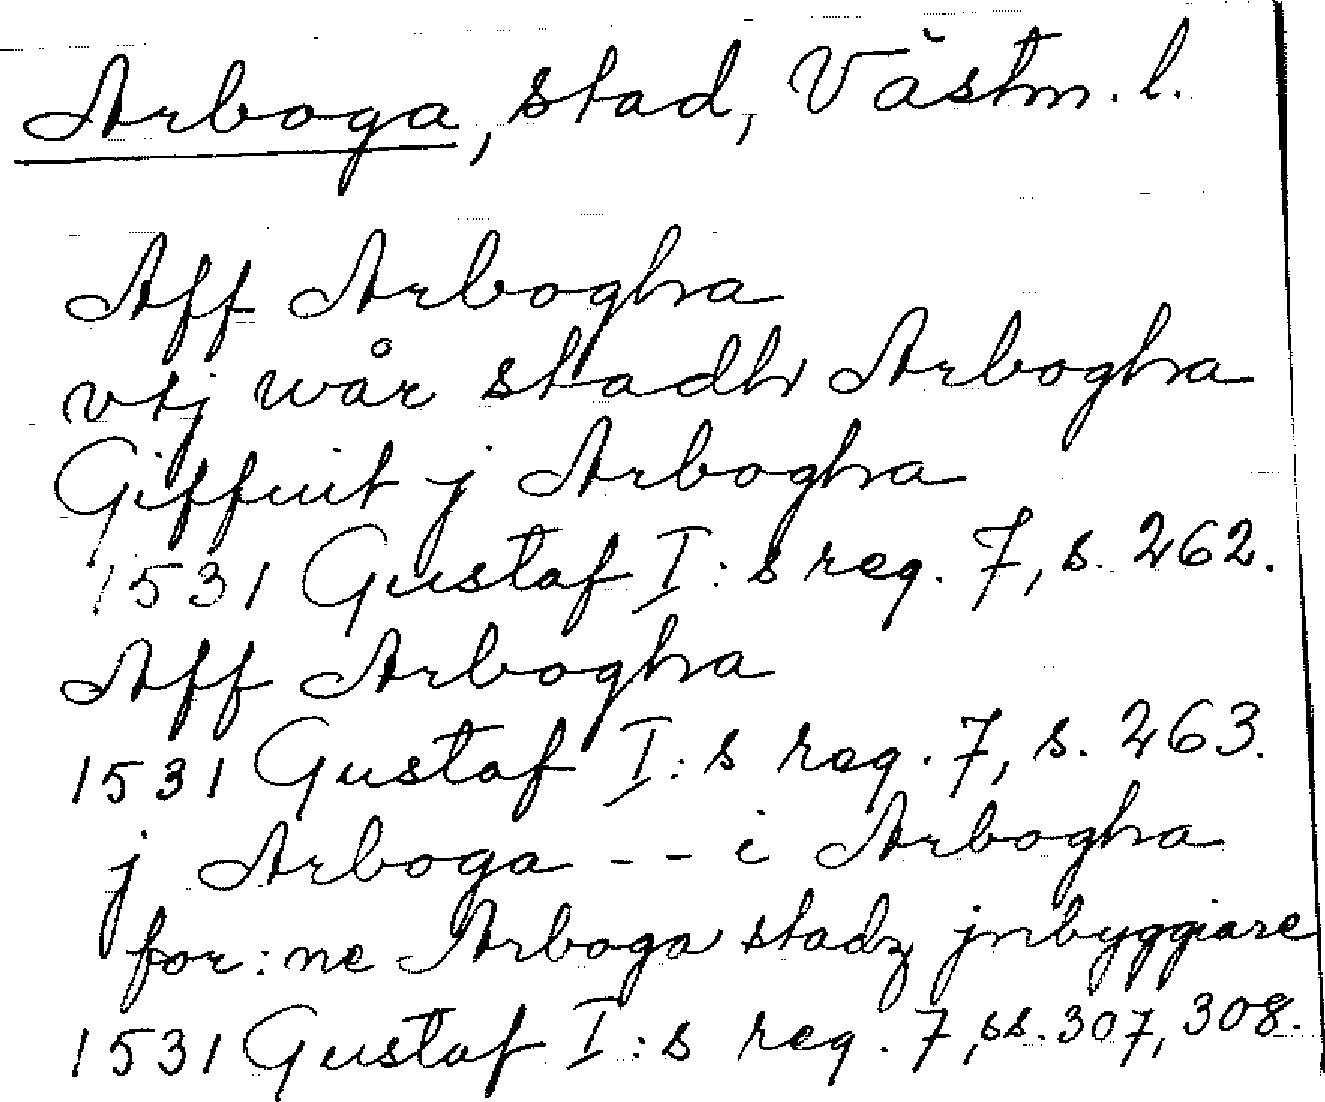 Arboga, stad, Västm. l.
Aff Arbogha
vtj wår stadh Arbogha
Giffuit j Arbogha
1531 Gustaf I:s reg. 7, s. 262.
Aff Arbogha
1531 Gustaf I:s reg. 7, s. 263.
j Arboga - - i Arbogha
for:ne Arboga stadz jnbyggiare
1531 Gustaf I:s reg. 7, ss. 307, 308.